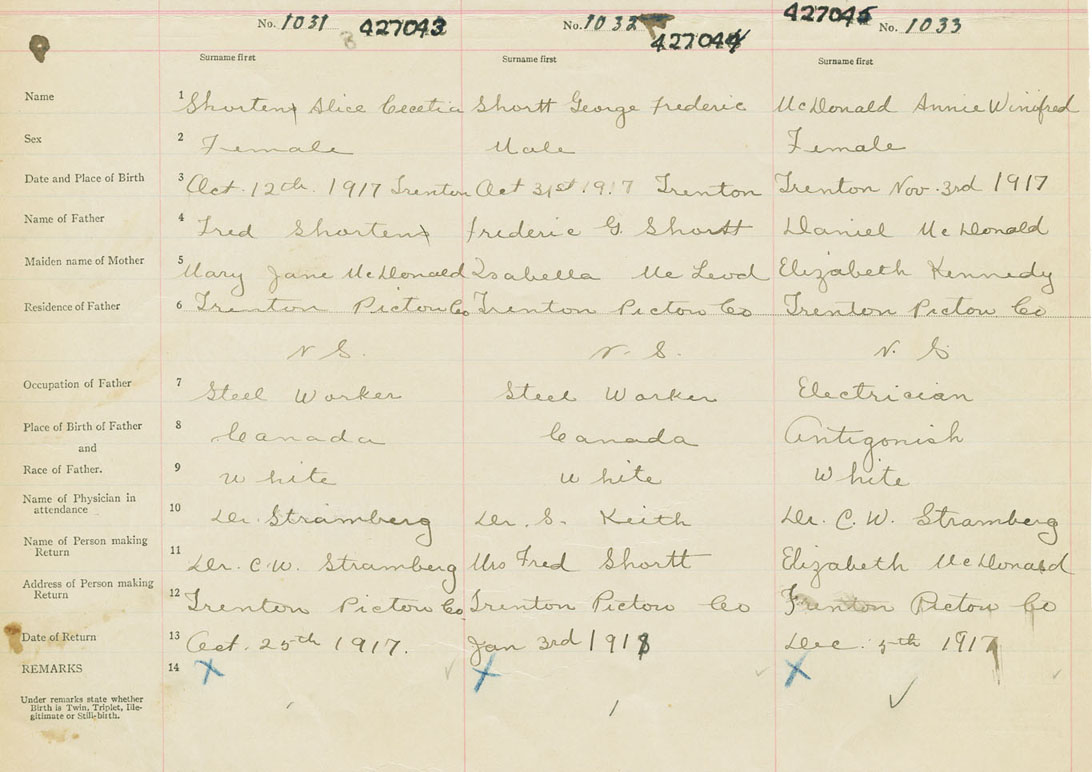 No. 1031 427043 No. 1032 427044 427045 No. 1033
Surname first Surname first Surname first
Name 1 Shorten Alice Cecetia Shortt George Frederic McDonald Annie Winifred
Sex 2 Female Male Female
Date and Place of Birth 3 Oct. 12th. 1917 Trenton Oct 31st 1917 Trenton Trenton Nov. 3rd 1917
Name of Father 4 Fred Shorten Frederic G. Shortt Daniel McDonald
Maiden name of Mother 5 Mary Jane McDonald Isabella Mc Leod Elizabeth Kennedy
Residence of Father 6 Trenton Pictou Co Trenton Pictou Co Trenton Pictou Co
N S. N. S. N. S
Occupation of Father 7 Steel Worker Steel Worker Electrician
Place of Birth of Father 8 Canada Canada Antigonish
and
Race of Father. 9 White White White
Name of Physician in
attendance 10 Dr. Stramberg Dr. S. Keith Dr. C. W. Stramberg
Name of Person making
Return 11 Dr. C.W. Stramberg Mrs Fred Shortt Elizabeth McDonald
Address of Person making
Return 12 Trenton Pictou Co Trenton Pictou Co Trenton Pictou Co
Date of Return 13 Oct. 25th 1917. Jan 3rd 1918 Dec. 5th 1917
REMARKS 14 X X X
Under remarks state whether
Birth is Twin, Triplet, Ille-
gitimate or Still-birth.